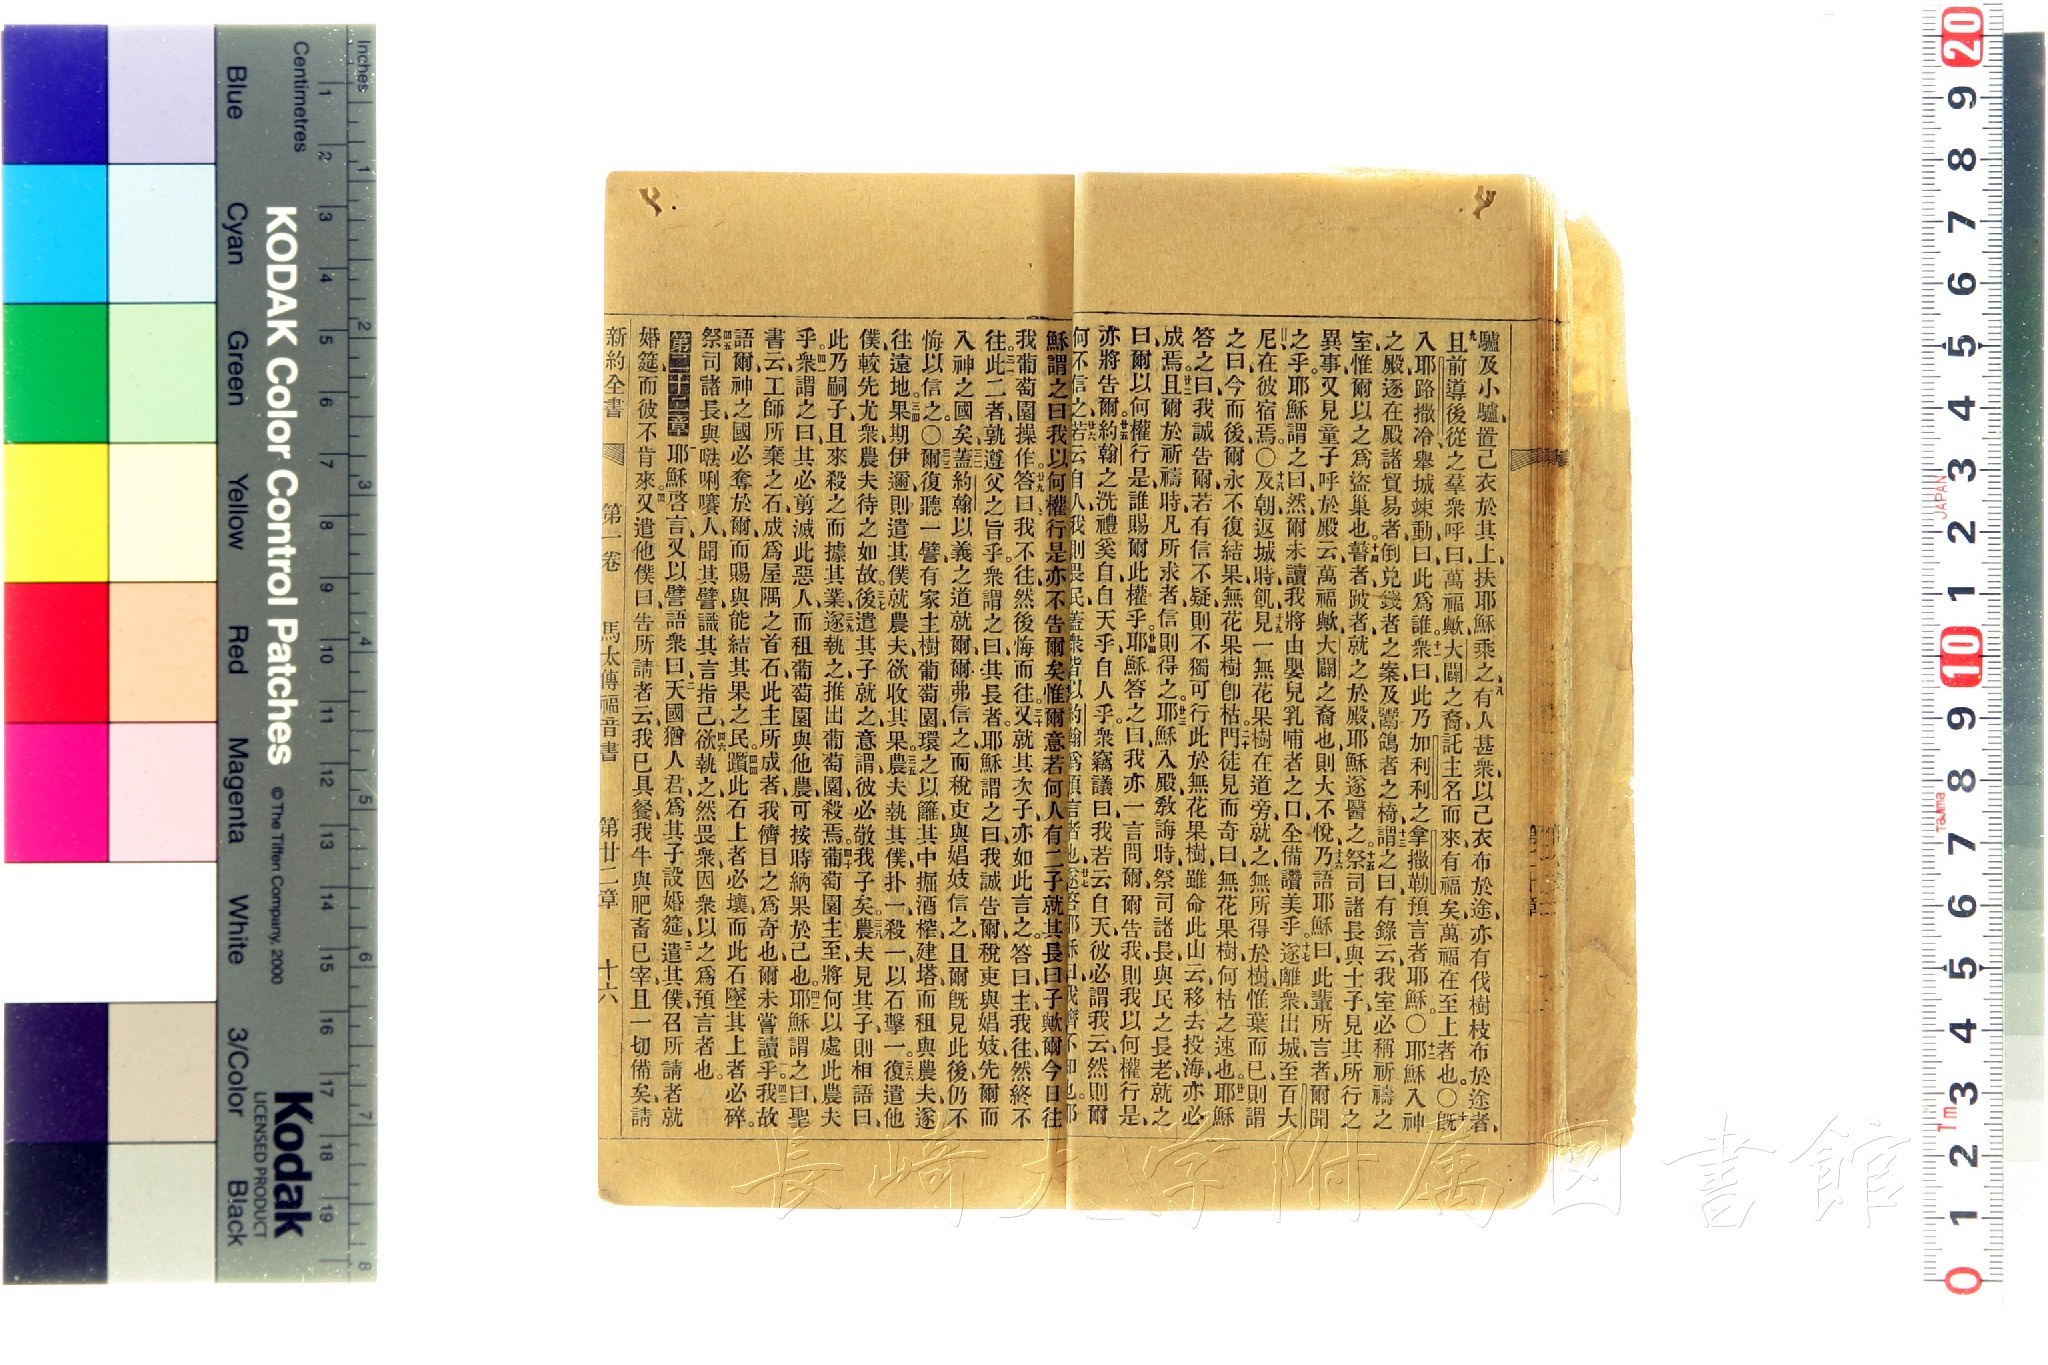 驢及小驢置己衣於其上扶耶穌乘之有人甚衆以己衣布於途亦有伐樹枝布於途者
且前導後從之羣衆呼曰萬福歟大闢之裔託主名而來有福矣萬福在至上者也〇旣
入耶路撒冷舉城竦動曰此爲誰衆曰此乃加利利之拿撒勒預言者耶穌〇耶穌入神
之殿逐在殿諸貿易者倒兌錢者之案及鬻鴿者之椅謂之曰有錄云我室必稱祈禱之
室惟爾以之爲盜巢也瞽者跛者就之於殿耶穌遂醫之祭司諸長與士子見其所行之
異事又見童子呼於殿云萬福歟大闢之裔也則大不悅乃語耶穌曰此輩所言者爾聞
之乎耶穌謂之曰然爾未讀我將由嬰兒乳哺者之口全備讚美乎遂離衆出城至百大
尼在彼宿焉〇及朝返城時飢見一無花果樹在道旁就之無所得於樹惟葉而已則謂
之曰今而後爾永不復結果無花果樹卽枯門徒見而奇曰無花果樹何枯之速也耶穌
答之曰我誠告爾若有信不疑則不獨可行此於無花果樹雖命此山云移去投海亦必
成焉且爾於祈禱時凡所求者信則得之耶穌入殿敎誨時祭司諸長與民之長老就之
曰爾以何權行是誰賜爾此權乎耶穌答之曰我亦一言問爾爾告我則我以何權行是
亦將告爾約翰之洗禮奚自自天乎自人乎衆竊議曰我若云自天彼必謂我云然則爾
何不信之若云自人我則畏民蓋衆皆以約翰爲預言者也遂答耶穌曰我儕不知也耶
穌謂之曰我以何權行是亦不告爾矣惟爾意若何人有二子就其長曰子歟爾今日往
我葡萄園操作答曰我不往然後悔而往又就其次子亦如此言之答曰主我往然終不
往此二者孰遵父之旨乎衆謂之曰其長者耶穌謂之曰我誠告爾稅吏與娼妓先爾而
入神之國矣蓋約翰以義之道就爾爾弗信之而稅吏與娼妓信之且爾旣見此後仍不
悔以信之〇爾復聽一譬有家主樹葡萄園環之以籬其中掘酒榨建塔而租與農夫遂
往遠地果期伊邇則遣其僕就農夫欲收其果農夫執其僕扑一殺一以石擊一復遣他
僕較先尤衆農夫待之如故後遣其子就之意謂彼必敬我子矣農夫見其子則相語曰
此乃嗣子且來殺之而據其業遂執之推出葡萄園殺焉葡萄園主至將何以處此農夫
乎衆謂之曰其必剪滅此惡人而租葡萄園與他農可按時納果於己也耶穌謂之曰聖
書云工師所棄之石成爲屋隅之首石此主所成者我儕目之爲奇也爾未嘗讀乎我故
語爾神之國必奪於爾而賜與能結其果之民躓此石上者必壞而此石墜其上者必碎
祭司諸長與𠵽唎嚷人聞其譬識其言指己欲執之然畏衆因衆以之爲預言者也
第二十二章 耶穌啓言又以譬語衆曰天國猶人君爲其子設婚筵遣其僕召所請者就
婚筵而彼不肯來又遣他僕曰告所請者云我已具餐我牛與肥畜已宰且一切備矣請
新約全書 第一卷 馬太傳福音書 第廿二章 十六
KODAK Color Control Patches
© The Tiffen Company, 2000
Kodak
LICENSED PRODUCT
Inches
Centimetres
Blue
Cyan
Green
Yellow
Red
Magenta
White
3/Color
Black
JAPAN
Tajima
Tm
長崎大学附属図書館